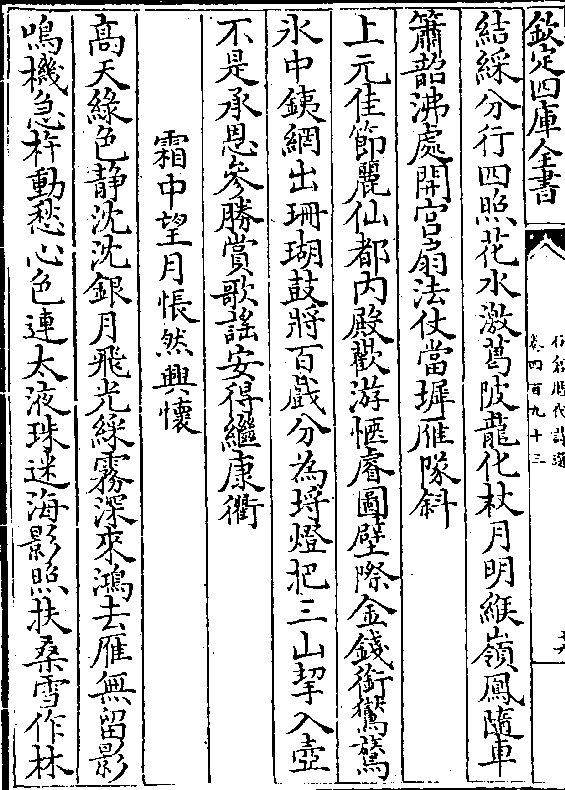 欽定四庫全書
卷四百九十三
結綵分行四照花水激葛陂龍化杖月明緱嶺鳳隨車
簫韶沸處開宫扇法仗當墀雁隊斜
上元佳節麗仙都内殿歡游愜睿圖璧際金錢銜鸑鷟
氷中銕網出珊瑚鼓將百戲分為埒燈把三山挈入壺
不是承恩參勝賞歌謡安得繼康衢
霜中望月悵然興懷
高天綠色静沈沈銀月飛光綵霧深來鴻去雁無留影
鳴機急杵動愁心色連太液珠迷海影照扶桑雪作林